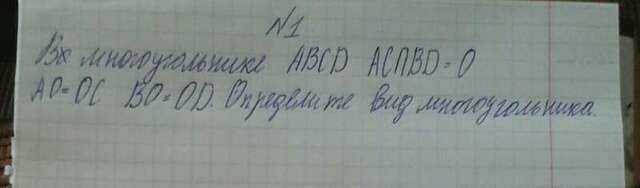 N1
Вх многоугольнике ABCD AC∩BD=O
AO=OC BO=OD. Определите вид многоугольника.